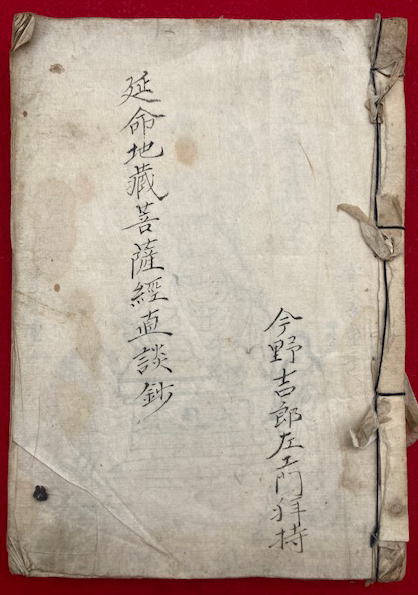 今野吉郎左エ門拝持
延命地藏菩薩經直談鈔